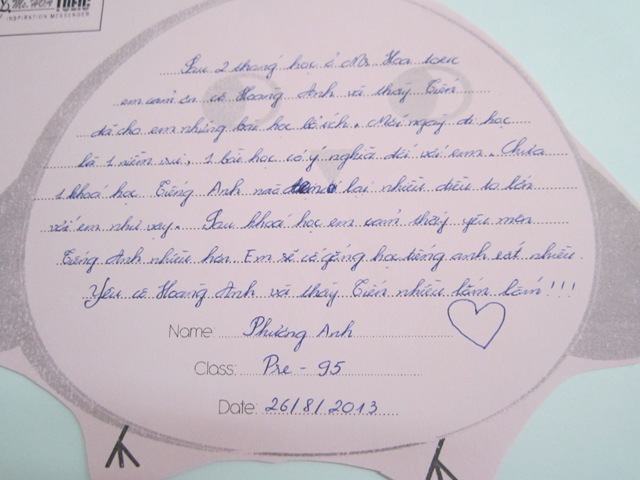 Ms. HOA TOEIC
INSPIRATION MESSENGER
Sau 2 tháng học ở Ms Hoa toeic
em cảm ơn cô Hoàng Anh và thầy Tiến
đã cho em những bài học bổ ích. Mỗi ngày đi học
là 1 niềm vui, 1 bài học có ý nghĩa đối với em. Chưa
1 khoá học Tiếng Anh nào đem lại nhiều điều to lớn
với em như vậy. Sau khoá học em cảm thấy yêu mến
Tiếng Anh nhiều hơn. Em sẽ cố gắng học tiếng anh rất nhiều.
Yêu cô Hoàng Anh và thầy Tiến nhiều lắm lắm!!!
Name Phương Anh
Class: Pre - 95
Date: 26/8/2013